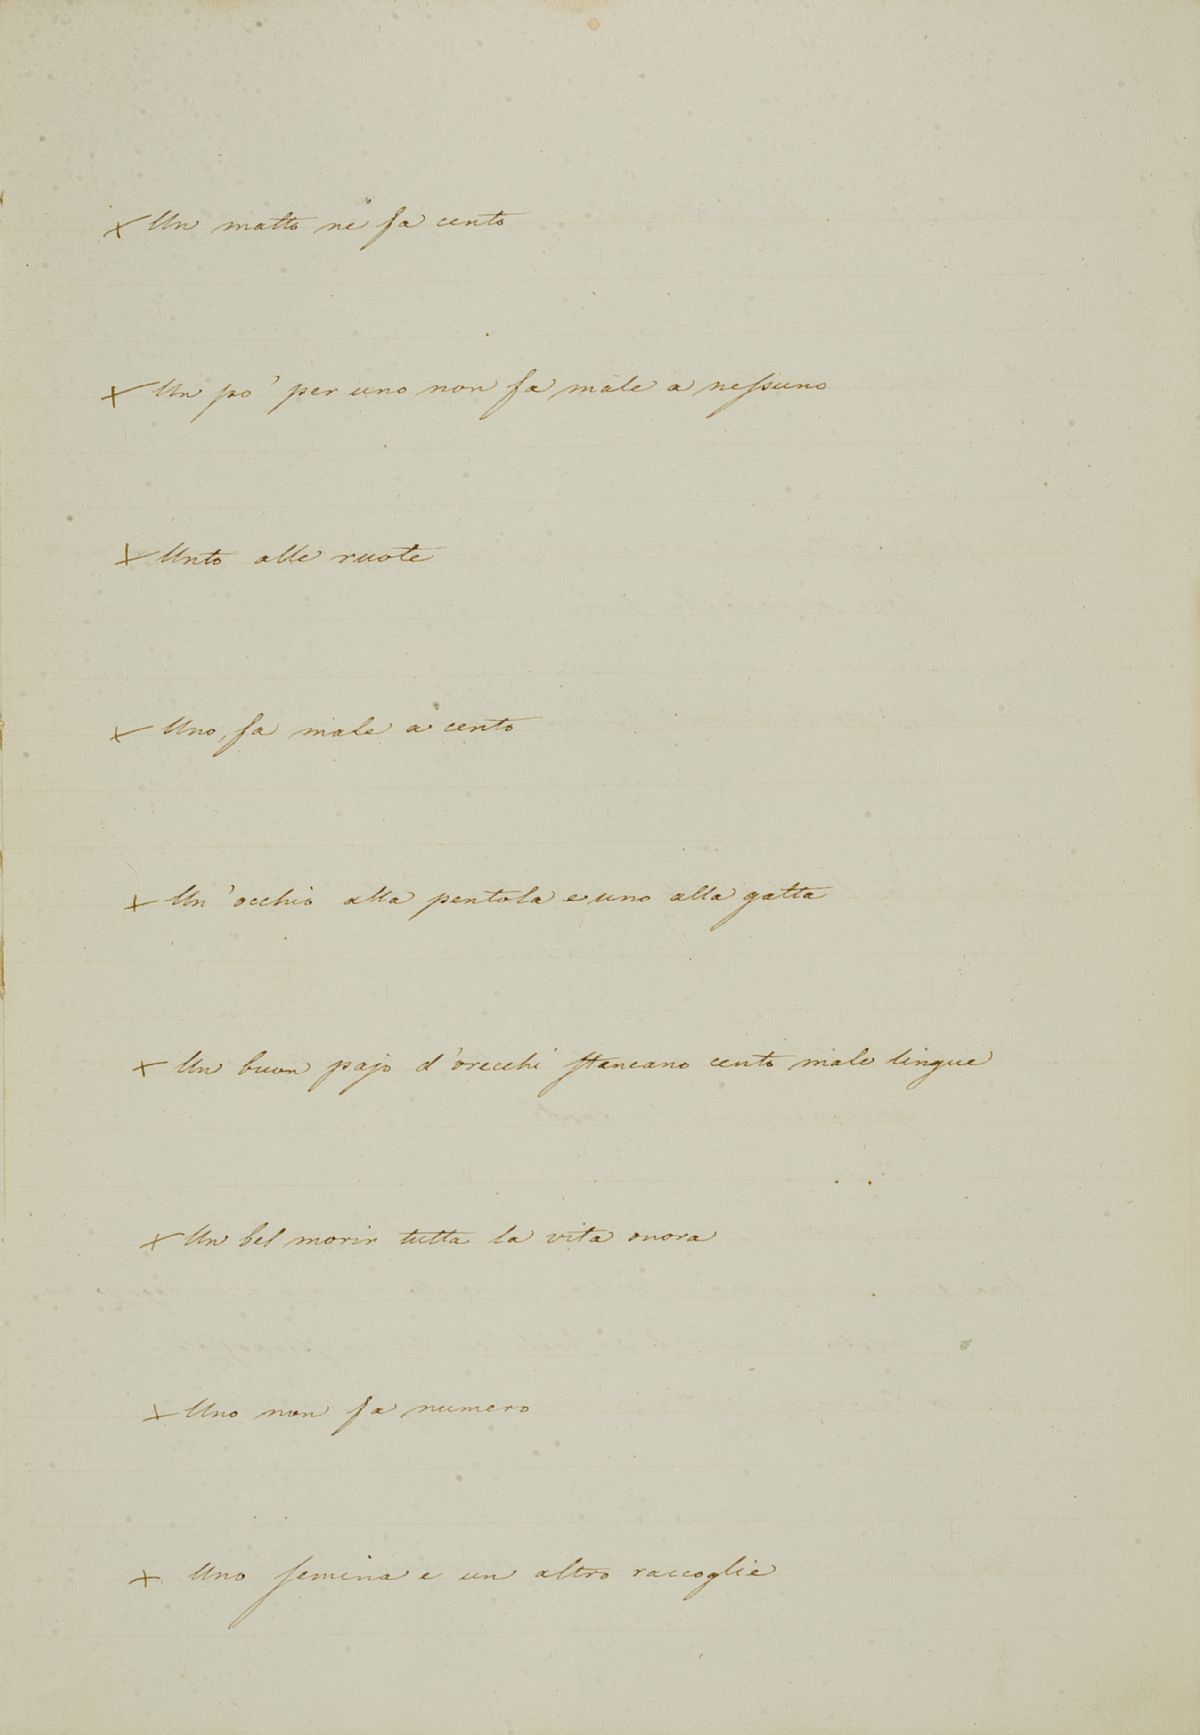 × Un matto ne fa cento
× Un po' per uno non fa male a nessuno
× Unto alle ruote
× Uno, fa male a cento
× Un' occhio alla pentola e uno alla gatta
× Un buon pajo d'orecchi stancano cento male lingue
× Un bel morir tutta la vita onora
× Uno non fa numero
× Uno semina e un altro raccoglie